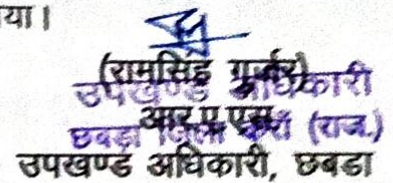 या।
(रामसिंह गुर्जर)
उपखण्ड अधिकारी
आर.ए.एस.
छबड़ा जिला बाराँ (राज.)
उपखण्ड अधिकारी, छबडा